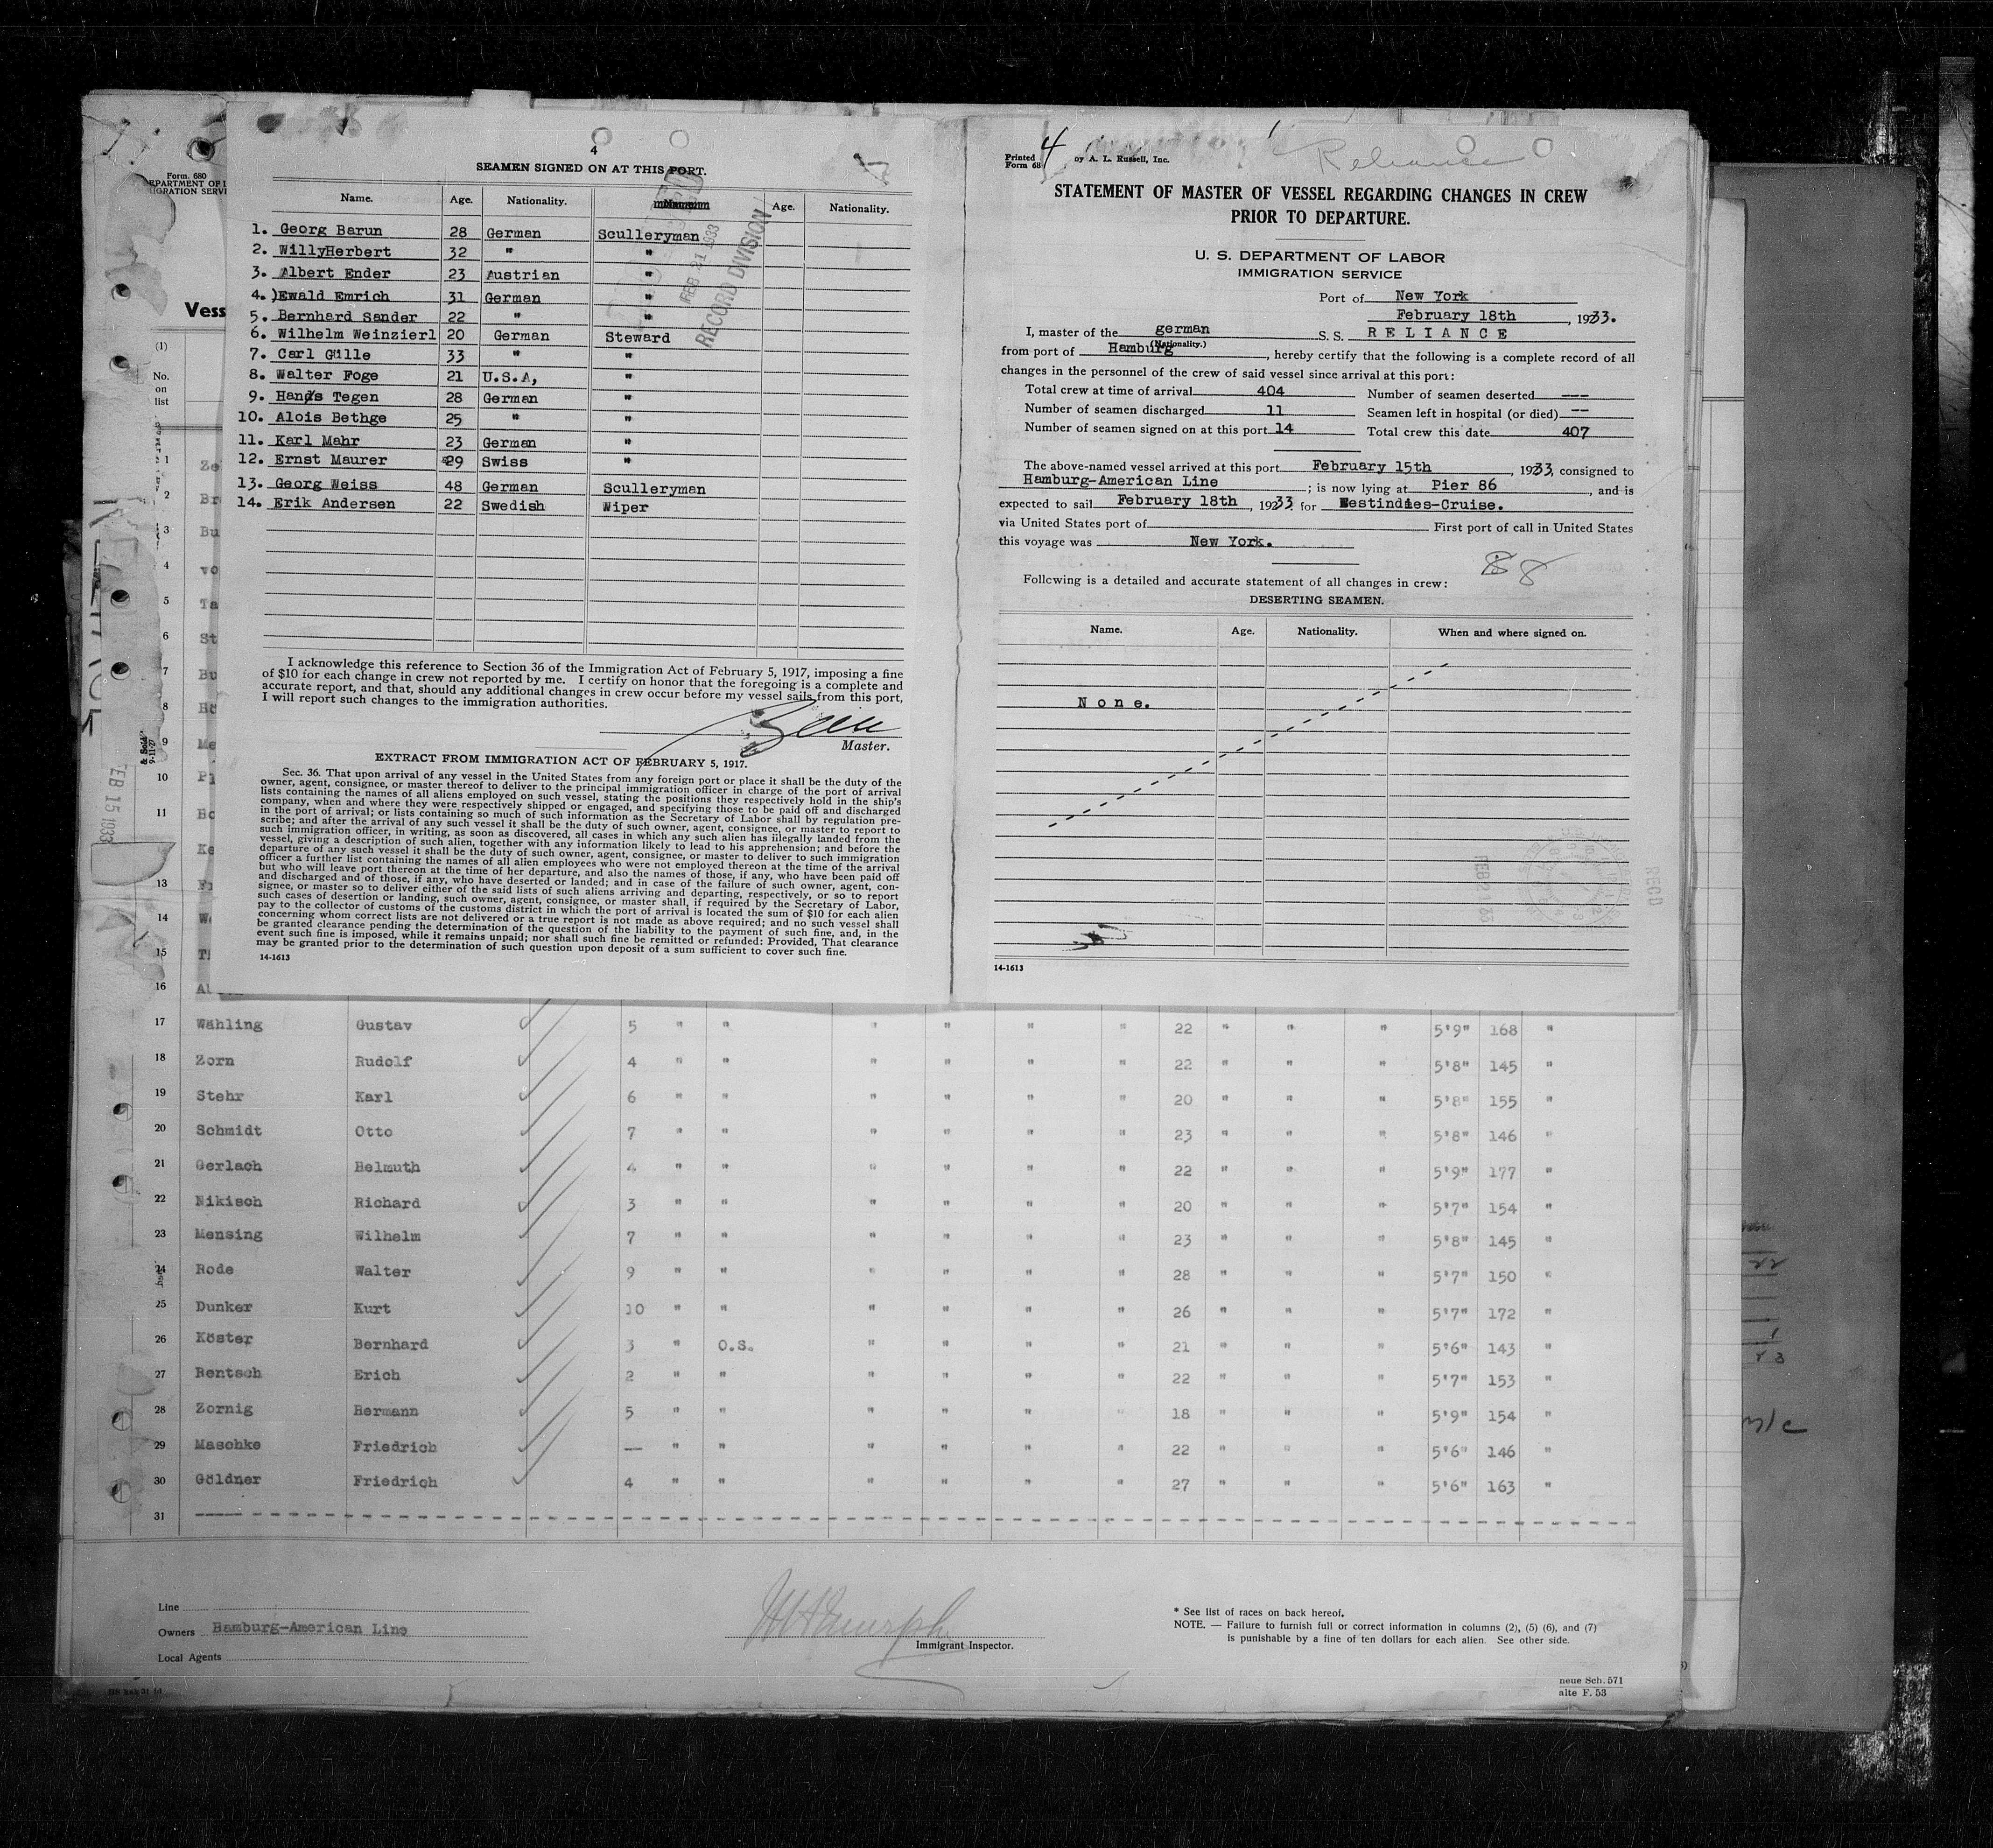 4
SEAMEN SIGNED ON AT THIS PORT.
Name. Age. Nationality. Age. Nationality.
1. Georg Barun 28 German Sculleryman
2. WillyHerbert 32 " "
3. Albert Ender 23 Austrian "
4. )Ewald Emrich 31 German "
5. Bernhard Sander 22 " "
6. Wilhelm Weinzierl 20 German Steward
7. Carl Gülle 33 " "
8. Walter Foge 21 U.S.A, "
9. Hans Tegen 28 German "
10. Alois Bethge 25 " "
11. Karl Mahr 23 German "
12. Ernst Maurer 29 Swiss "
13. Georg Weiss 48 German Sculleryman
14. Erik Andersen 22 Swedish Wiper
FEB 21 1933
RECORD DIVISION
I acknowledge this reference to Section 36 of the Immigration Act of February 5, 1917, imposing a fine
of $10 for each change in crew not reported by me. I certify on honor that the foregoing is a complete and
accurate report, and that, should any additional changes in crew occur before my vessel sails from this port,
I will report such changes to the immigration authorities.
Master.
EXTRACT FROM IMMIGRATION ACT OF FEBRUARY 5, 1917.
Sec. 36. That upon arrival of any vessel in the United States from any foreign port or place it shall be the duty of the
owner, agent, consignee, or master thereof to deliver to the principal immigration officer in charge of the port of arrival
lists containing the names of all aliens employed on such vessel, stating the positions they respectively hold in the ship's
company, when and where they were respectively shipped or engaged, and specifying those to be paid off and discharged
in the port of arrival; or lists containing so much of such information as the Secretary of Labor shall by regulation pre-
scribe; and after the arrival of any such vessel it shall be the duty of such owner, agent, consignee, or master to report to
such immigration officer, in writing, as soon as discovered, all cases in which any such alien has illegally landed from the
vessel, giving a description of such alien, together with any information likely to lead to his apprehension; and before the
departure of any such vessel it shall be the duty of such owner, agent, consignee, or master to deliver to such immigration
officer a further list containing the names of all alien employees who were not employed thereon at the time of the arrival
but who will leave port thereon at the time of her departure, and also the names of those, if any, who have been paid off
and discharged and of those, if any, who have deserted or landed; and in case of the failure of such owner, agent, con-
signee, or master so to deliver either of the said lists of such aliens arriving and departing, respectively, or so to report
such cases of desertion or landing, such owner, agent, consignee, or master shall, if required by the Secretary of Labor,
pay to the collector of customs of the customs district in which the port of arrival is located the sum of $10 for each alien
concerning whom correct lists are not delivered or a true report is not made as above required; and no such vessel shall
be granted clearance pending the determination of the question of the liability to the payment of such fine, and, in the
event such fine is imposed, while it remains unpaid; nor shall such fine be remitted or refunded: Provided, That clearance
may be granted prior to the determination of such question upon deposit of a sum sufficient to cover such fine.
14-1613
Printed by A. L. Russell, Inc.
Form 68
4
Reliance
STATEMENT OF MASTER OF VESSEL REGARDING CHANGES IN CREW
PRIOR TO DEPARTURE.
U. S. DEPARTMENT OF LABOR
IMMIGRATION SERVICE
Port of New York
February 18th, 1933.
I, master of the german S. S. RELIANCE
(Nationality.)
from port of Hamburg, hereby certify that the following is a complete record of all
changes in the personnel of the crew of said vessel since arrival at this port:
Total crew at time of arrival 404 Number of seamen deserted ---
Number of seamen discharged 11 Seamen left in hospital (or died) --
Number of seamen signed on at this port 14 Total crew this date 407
The above-named vessel arrived at this port February 15th, 1933, consigned to
Hamburg-American Line; is now lying at Pier 86, and is
expected to sail February 18th, 1933 for Westindies-Cruise.
via United States port of First port of call in United States
this voyage was New York.
88
Following is a detailed and accurate statement of all changes in crew:
DESERTING SEAMEN.
Name. Age. Nationality. When and where signed on.
None.
FEB 21 33
REC'D
14-1613
Form. 680
Vess
(1)
No.
on
list
FEB 15 1933
1 Ze
2 Br
3 Bu
4 vo
5 Ta
6 St
7 Bu
8 Hö
9 Me
10 Pl
11 Ho
Ke
13 Fr
14 We
15 Th
16 Al
17 Wähling Gustav 5 " " " " " " 22 " " " 5'9" 168 "
18 Zorn Rudolf 4 " " " " " " 22 " " " 5'8" 145 "
19 Stehr Karl 6 " " " " " " 20 " " " 5'8" 155 "
20 Schmidt Otto 7 " " " " " " 23 " " " 5'8" 146 "
21 Gerlach Helmuth 4 " " " " " " 22 " " " 5'9" 177 "
22 Nikisch Richard 3 " " " " " " 20 " " " 5'7" 154 "
23 Mensing Wilhelm 7 " " " " " " 23 " " " 5'8" 145 "
24 Rode Walter 9 " " " " " " 28 " " " 5'7" 150 "
25 Dunker Kurt 10 " " " " " " 26 " " " 5'7" 172 "
26 Köster Bernhard 3 " O.S. " " " " 21 " " " 5'6" 143 "
27 Rentsch Erich 2 " " " " " " 22 " " " 5'7" 153 "
28 Zornig Hermann 5 " " " " " " 18 " " " 5'9" 154 "
29 Maschke Friedrich — " " " " " " 22 " " " 5'6" 146 "
30 Göldner Friedrich 4 " " " " " " 27 " " " 5'6" 163 "
31
Line
Owners Hamburg-American Line
Local Agents
Immigrant Inspector.
* See list of races on back hereof.
NOTE. — Failure to furnish full or correct information in columns (2), (5) (6), and (7)
is punishable by a fine of ten dollars for each alien. See other side.
neue Sch. 571
alte F. 53